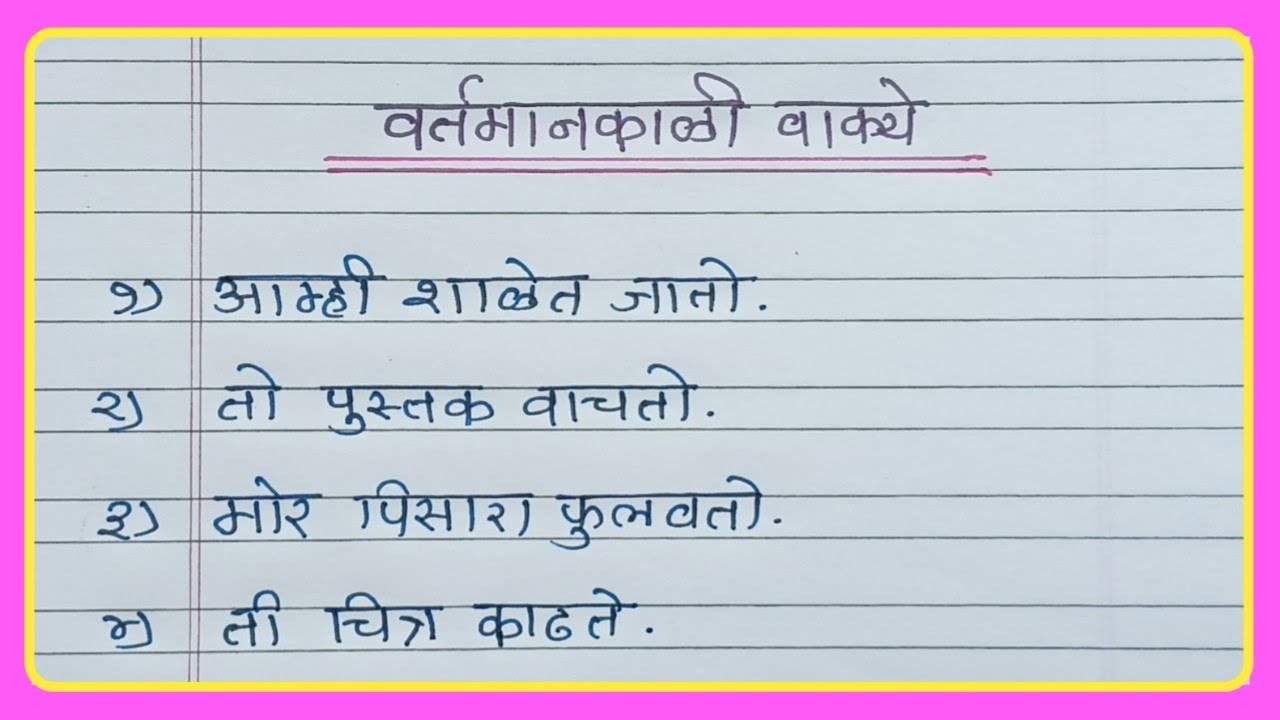 वर्तमानकाळी वाक्ये
१) आम्ही शाळेत जातो.
२) तो पुस्तक वाचतो.
३) मोर पिसारा फुलवतो.
४) ती चित्र काढते.